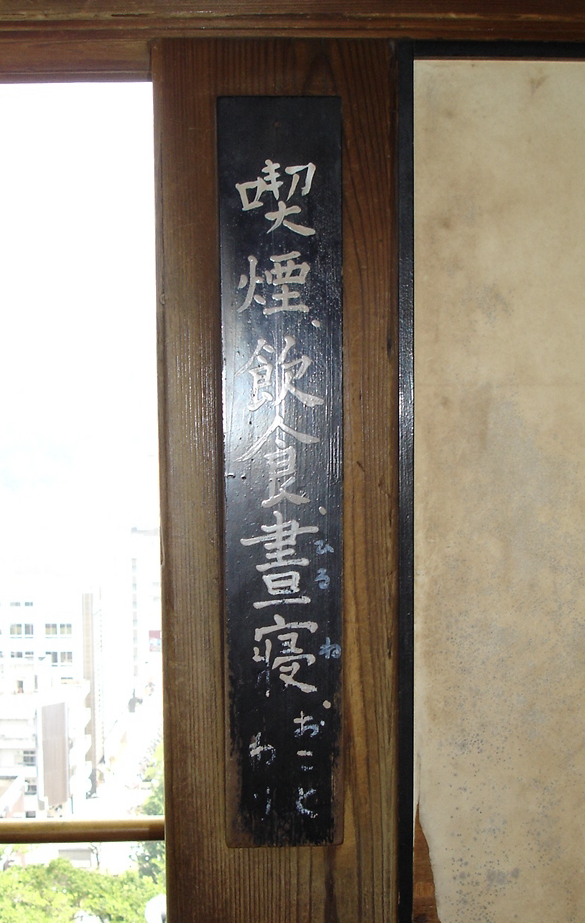 喫煙、飲食、晝寝、
ひるね
おこと
わり